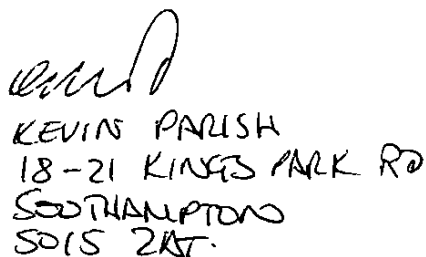 KEVIN PARISH
18-21 KINGS PARK RD
SOUTHAMPTON
SO15 2AT.